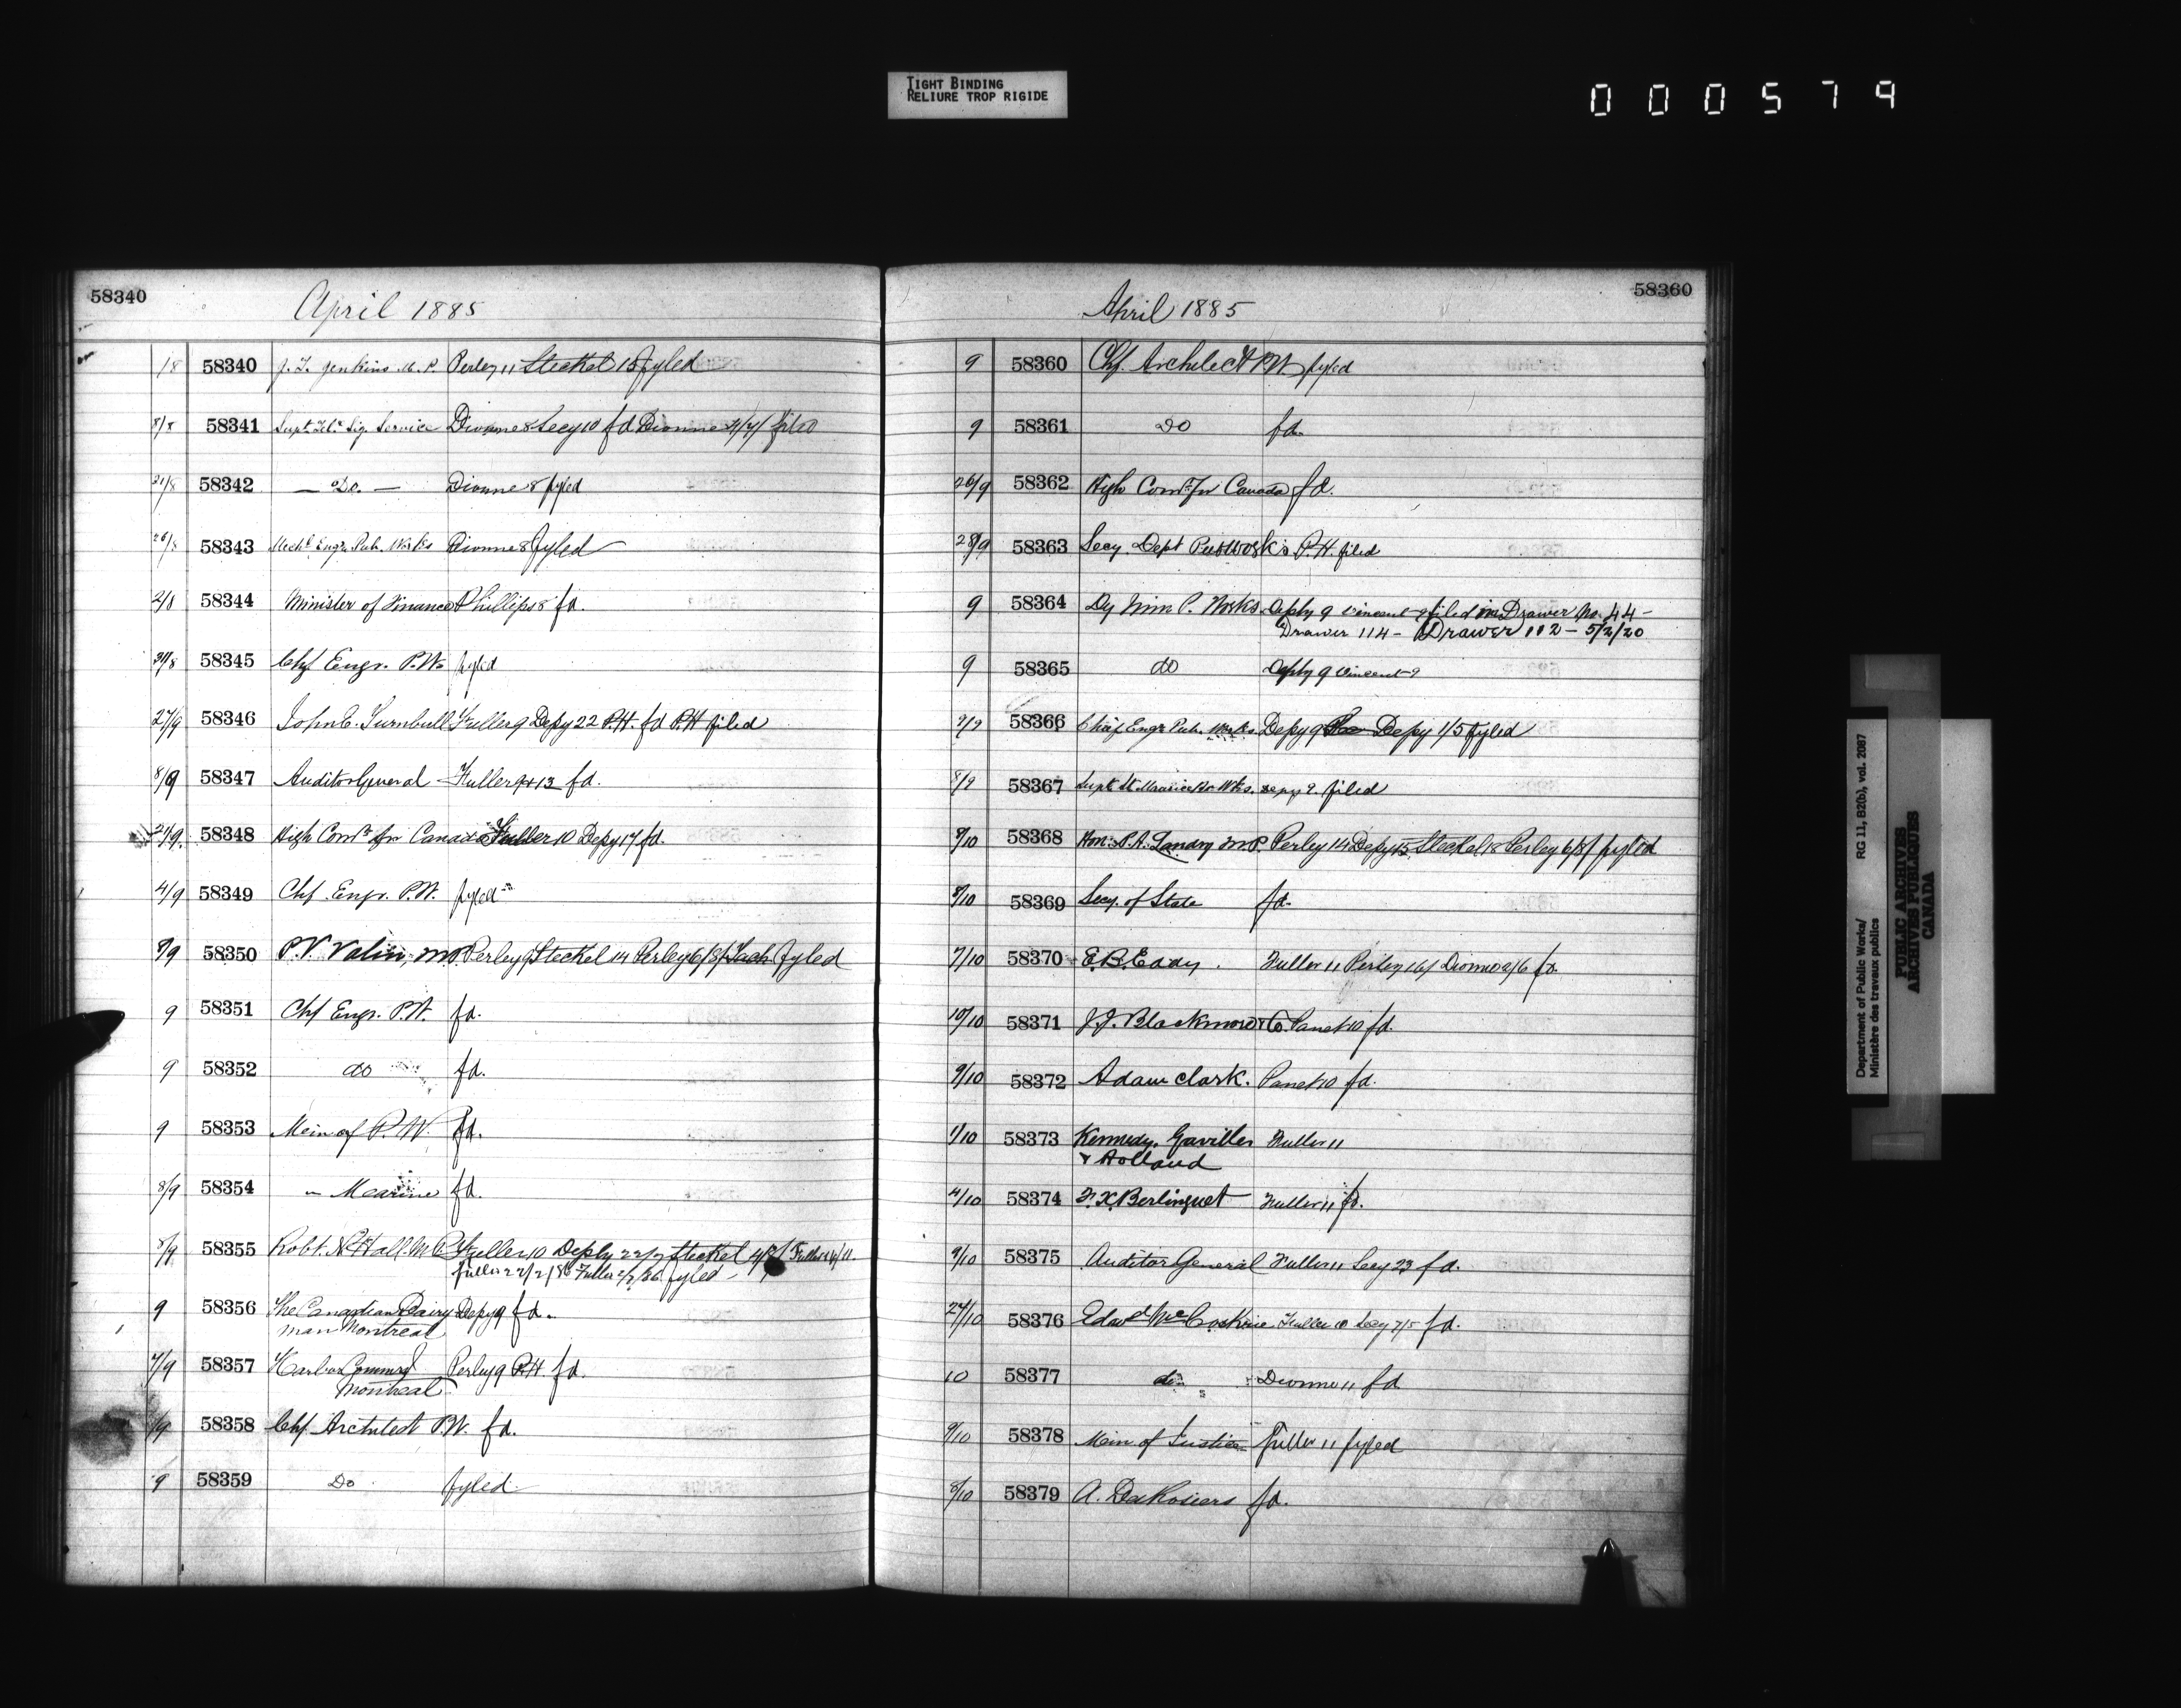 TIGHT BINDING
RELIURE TROP RIGIDE
000579
58340
April 1885
1/8 58340 J. T. Jenkins M. P. Perley 11 Steckel 15 fyled
8/8 58341 Supt. Sig. Service Dionne 8 Secy 10 fd Dionne filed
21/8 58342 — Do. — Dionne 8 fyled
26/8 58343 Mechl. Engr. Pub. Works Dionne 8 fyled
2/8 58344 Minister of Finance Phillips 8 fd.
31/8 58345 Chf Engr. P.W. fyled
27/9 58346 John C. Turnbull Fuller 9 Depy 22 P.H. fd P.H filed
8/9 58347 Auditor General Fuller 9 + 13 fd.
24/9 58348 High Comr for Canada Fuller 10 Depy 17 fd.
4/9 58349 Chf. Engr. P.W. fyled
9/9 58350 P.V. Valin, M.P. Perley 9 Steckel 14 Perley 6/8/ fyled
9 58351 Chf Engr. P.W. fd.
9 58352 do fd.
9 58353 Min of P.W. fd.
8/9 58354 " Marine fd.
8/9 58355 Robt. N. Hall M.P. Fuller 10 Depy 22/7 Steckel Fuller
Fuller 22/2/86 Fuller 2/7/86 fyled
9 58356 The Canadian Dairy Depy 9 fd.
man Montreal
7/9 58357 Harbor Commrs Perley 9 P.H. fd.
Montreal
/9 58358 Chf. Architect P.W. fd.
9 58359 Do fyled
58360
April 1885
9 58360 Chf. Architect P.W. fyled
9 58361 Do fd.
26/9 58362 High Comr. for Canada fd.
28/9 58363 Secy. Dept Pub Works P.H. filed
9 58364 Dy Min P. Works. Depy 9 Vincent 9 filed in Drawer No. 44 -
Drawer 114 - Drawer 112 - 5/2/20
9 58365 do Depy 9 Vincent 9
7/9 58366 Chief Engr. Pub. Works Depy 9 Depy 1/5 fyled
8/9 58367 Supt. St. Maurice Wks. Depy 9. filed
9/10 58368 Hon. P.A. Landry M.P. Perley 14 Depy 15 Steckel 18 Perley 6/8/ fyled
8/10 58369 Secy. of State fd.
7/10 58370 E.B. Eddy. Fuller 11 Perley 16/ Dionne 2/6 fd.
10/10 58371 J.J. Blackmore & Co. Panet 10 fd.
9/10 58372 Adam Clark. Panet 10 fd.
1/10 58373 Kennedy, Gaviller Fuller 11
& Holland
4/10 58374 F.X. Berlinguet Fuller 11 fd.
9/10 58375 Auditor General Fuller 11 Secy 23 fd.
24/10 58376 Edwd Mc Fuller 10 Secy 7/5 fd.
10 58377 do Dionne 11 fd
9/10 58378 Min. of Justice Fuller 11 fyled
8/10 58379 A. DesRosiers fd.
Department of Public Works/ RG 11, B2(b), vol. 2087
Ministère des travaux publics
PUBLIC ARCHIVES
ARCHIVES PUBLIQUES
CANADA